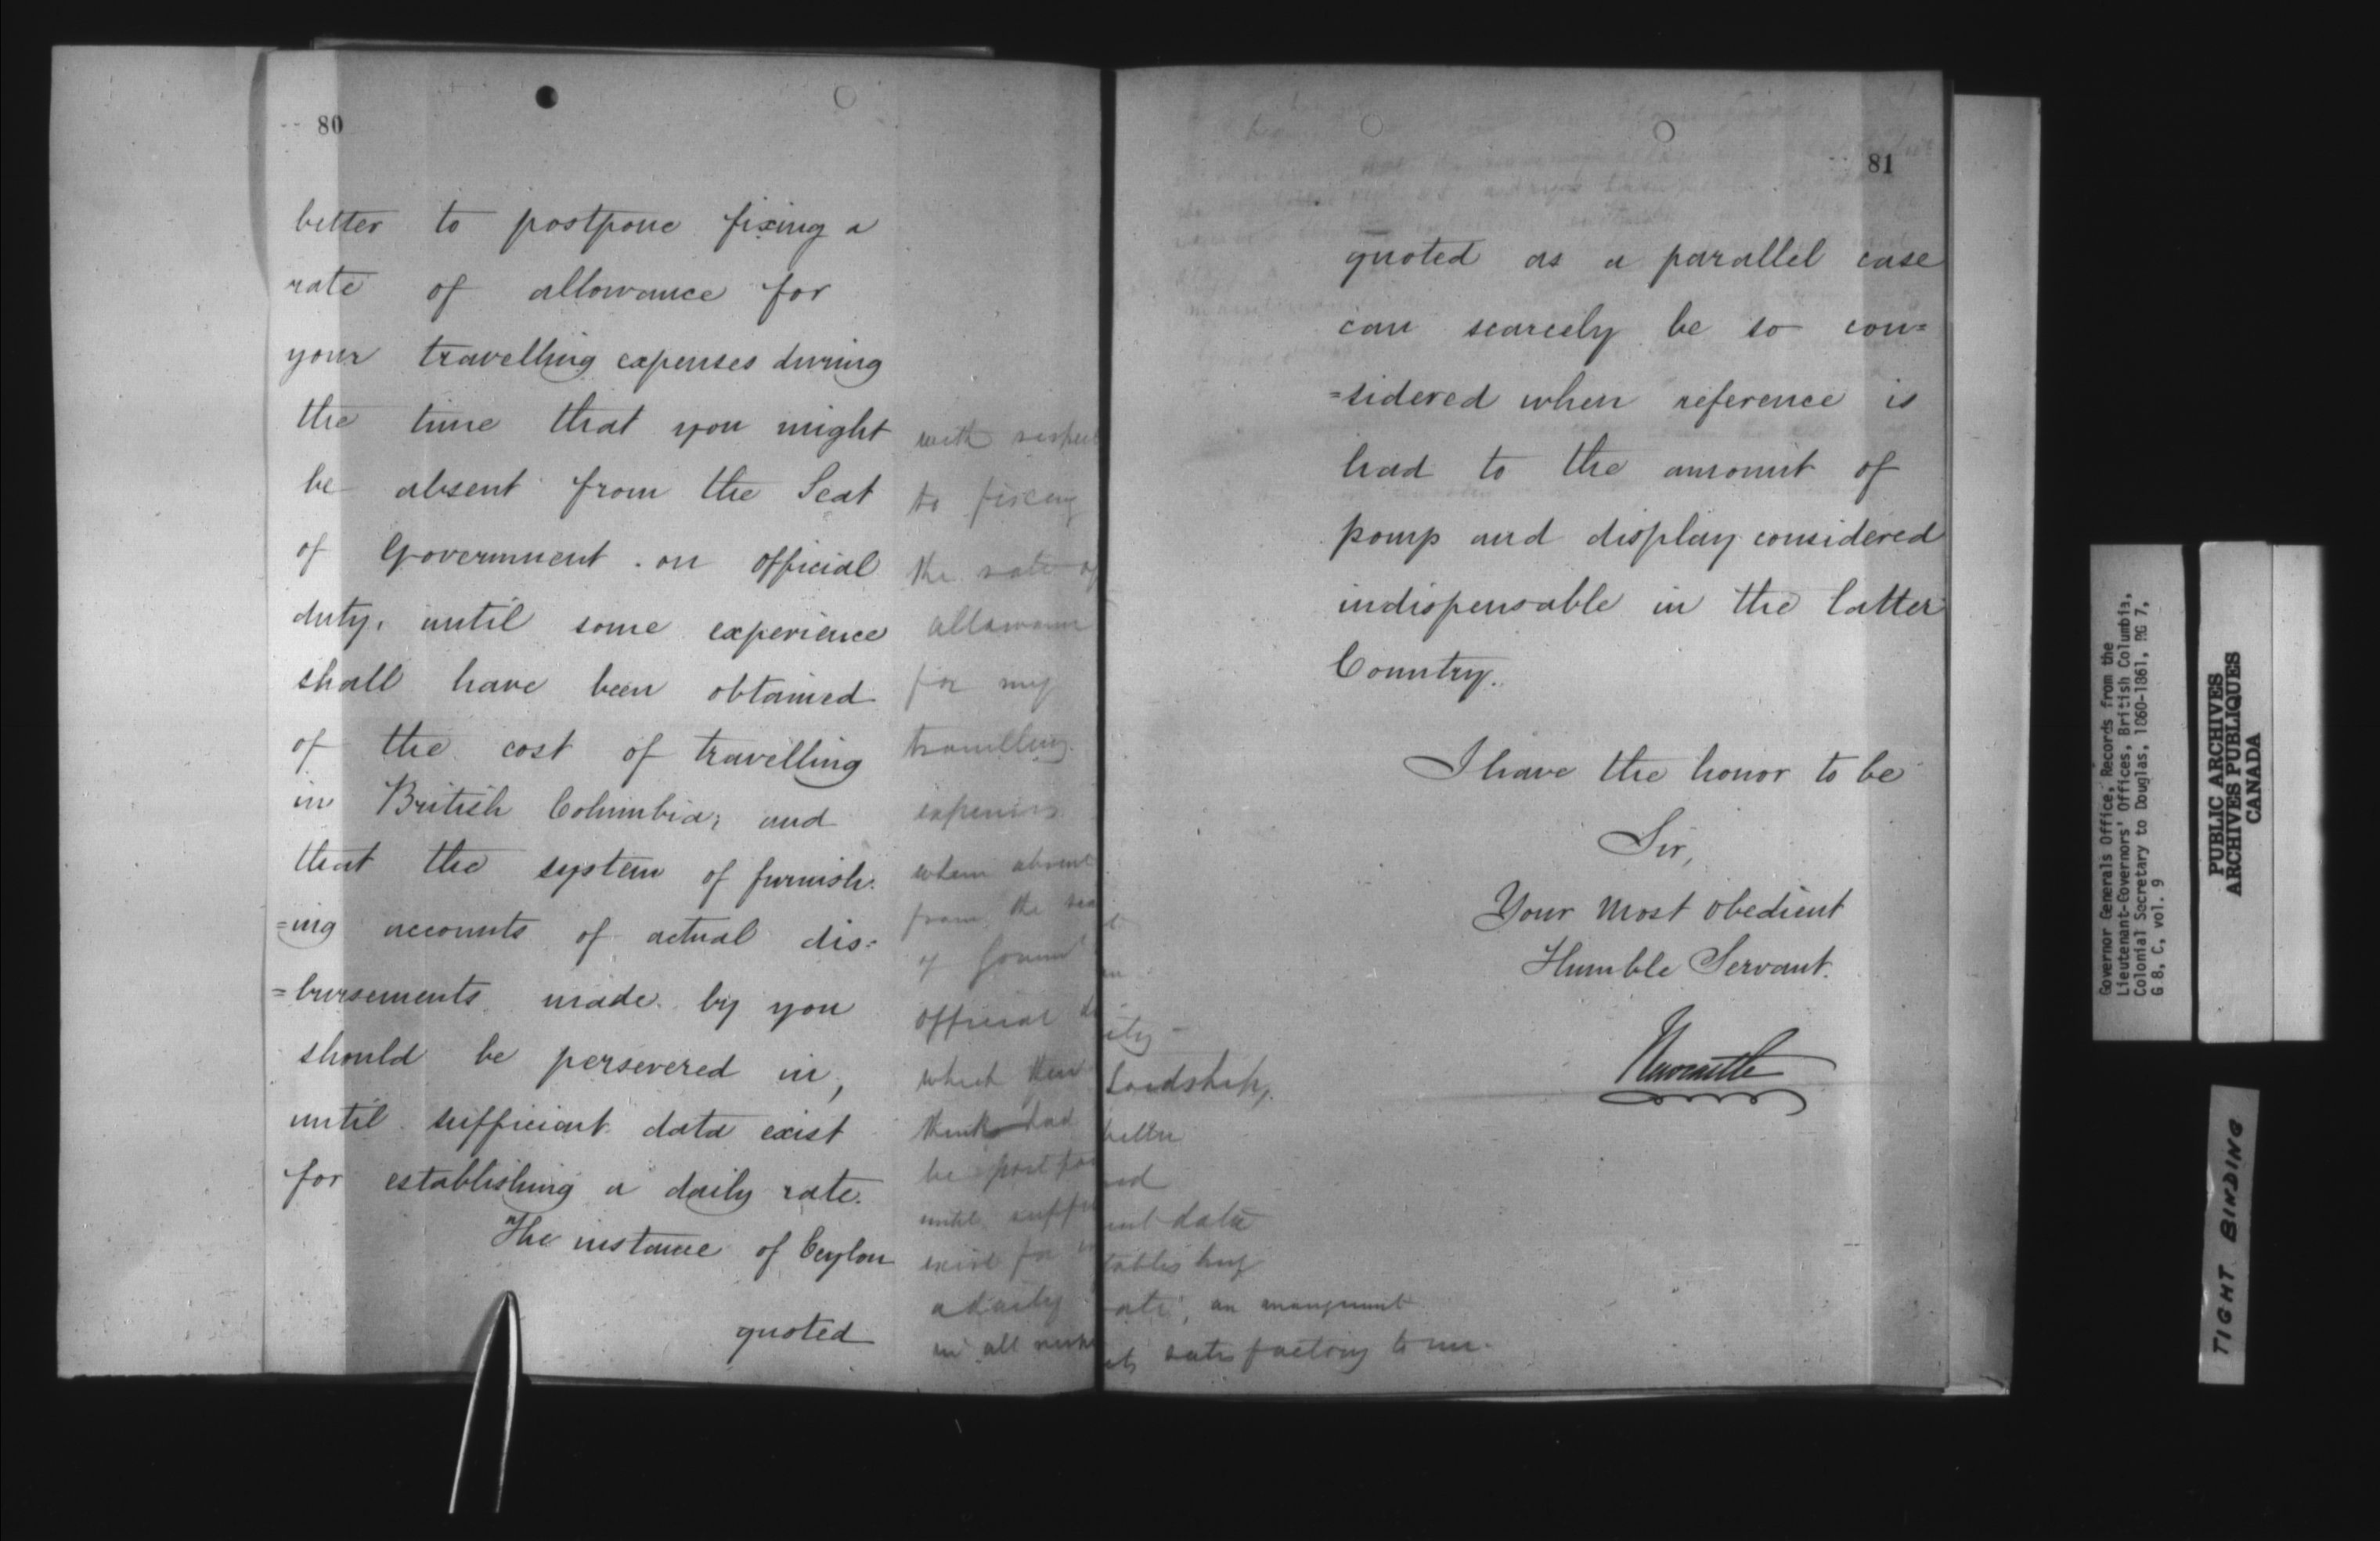 80
better to postpone fixing a
rate of allowance for
your travelling expenses during
the time that you might
be absent from the Seat
of Government on official
duty, until some experience
shall have been obtained
of the cost of travelling
in British Columbia; and
that the system of furnish-
=ing accounts of actual dis=
=bursements made by you
should be persevered in,
until sufficient data exist
for establishing a daily rate.
The instance of Ceylon
quoted
with respect
to fixing
the rate of
allowance
for my
travelling
expenses
when absent
from the seat
of Governt on
official duty -
which their Lordships,
think had better
be postponed
until sufficient data
exist for establishing
a daily rate, an arrangement
in all respects satisfactory to me.
81
quoted as a parallel case
can scarcely be so con=
=sidered when reference is
had to the amount of
pomp and display considered
indispensable in the latter
Country.
I have the honor to be
Sir,
Your most obedient
Humble Servant.
Newcastle
Governor Generals Office, Records from the
Lieutenant-Governors' Offices, British Columbia,
Colonial Secretary to Douglas, 1860-1861, RG 7,
G 8, C, vol. 9
PUBLIC ARCHIVES
ARCHIVES PUBLIQUES
CANADA
TIGHT BINDING